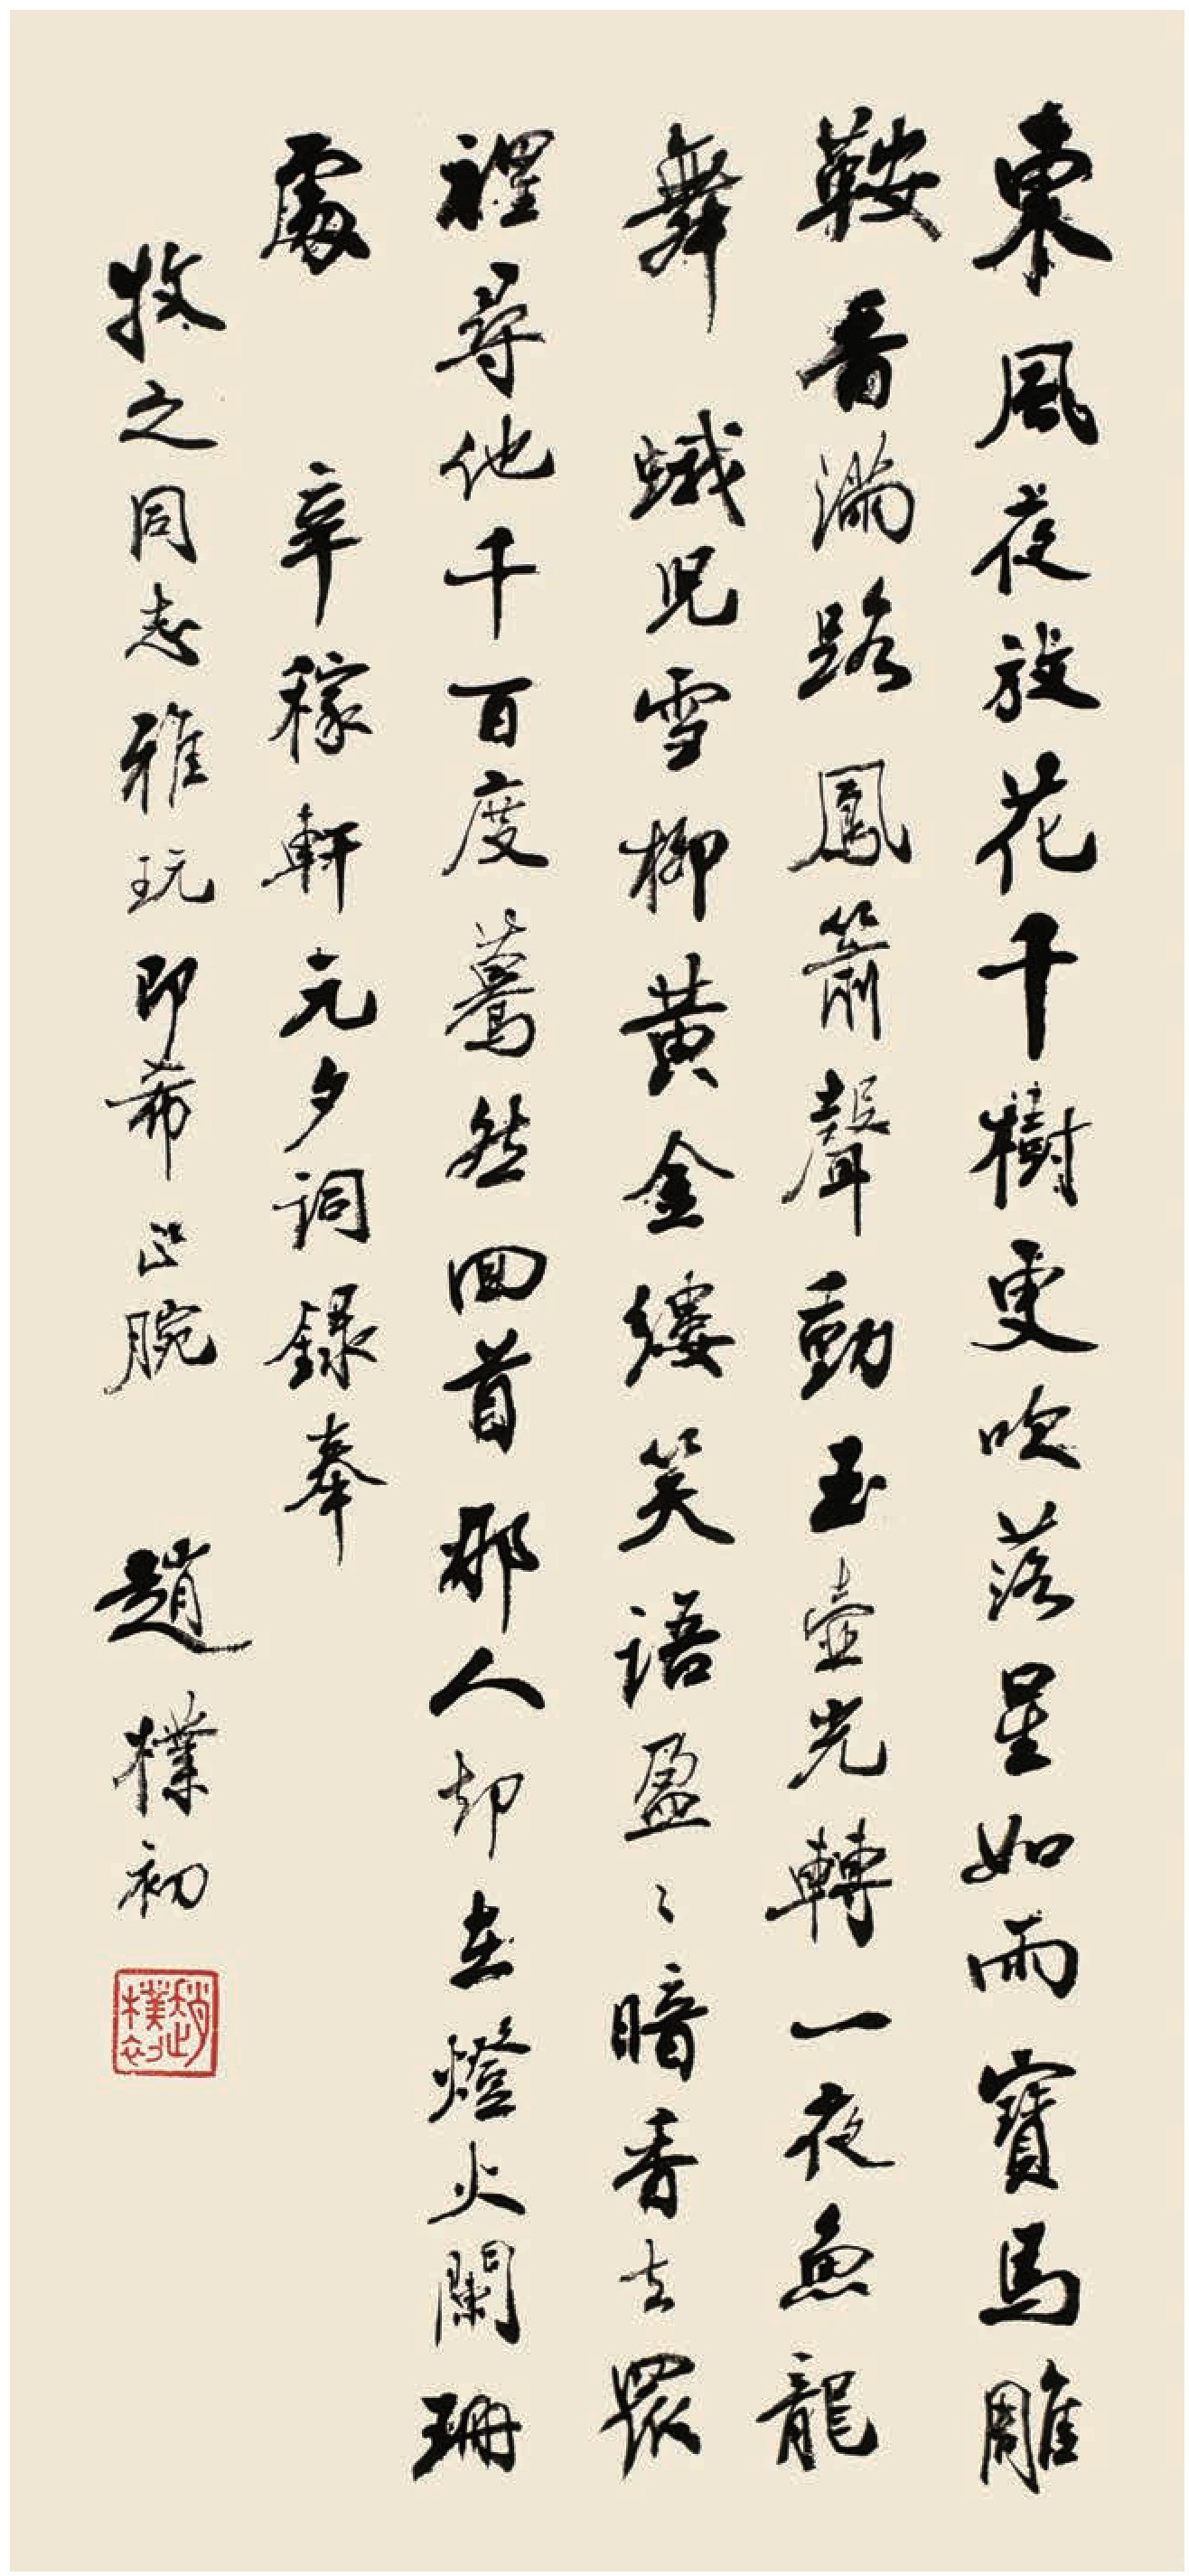 東風夜放花千樹更吹落星如雨寶馬雕
鞍香滿路鳳簫聲動玉壺光轉一夜魚龍
舞 蛾兒雪柳黃金縷笑語盈〻暗香去眾
裡尋他千百度驀然回首那人却在燈火闌珊
處 辛稼軒元夕詞錄奉
牧之同志雅玩即希正腕 趙樸初
趙樸初